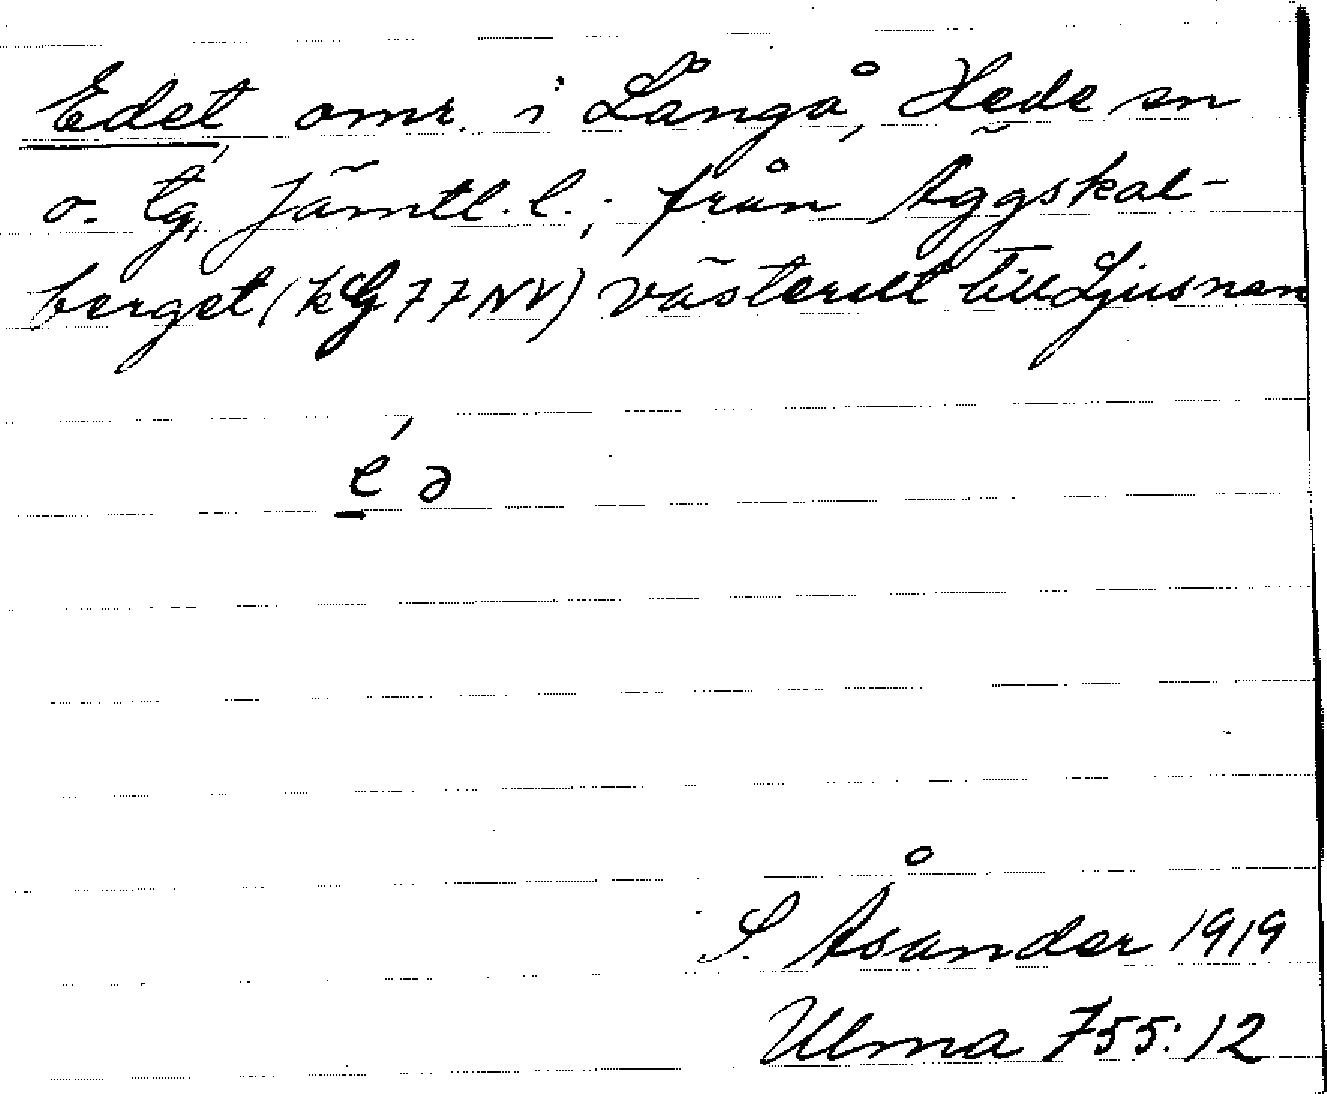 Edet, omr. i Långå, Hede sn
o. tg, Jämtl. l.; från Äggskal-
berget (kG 77 NV) västerut till Ljusnan
é ə
S. Åsander 1919
Ulma 755:12